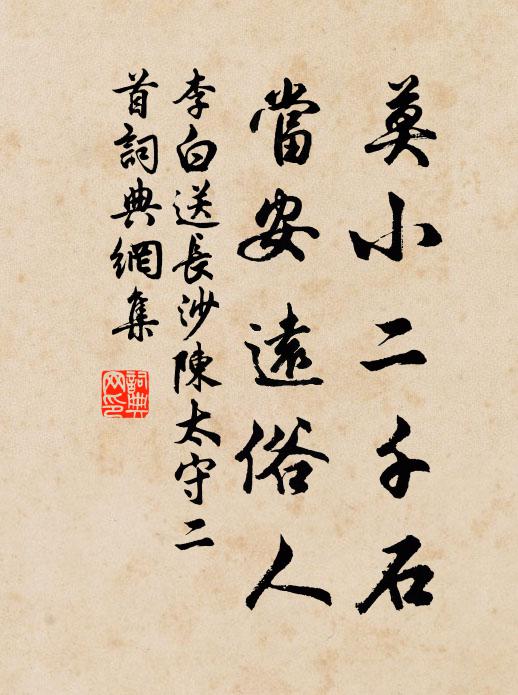 莫小二千石
當安遠俗人
李白送長沙陳太守二
首詞典網集
詞典
网印